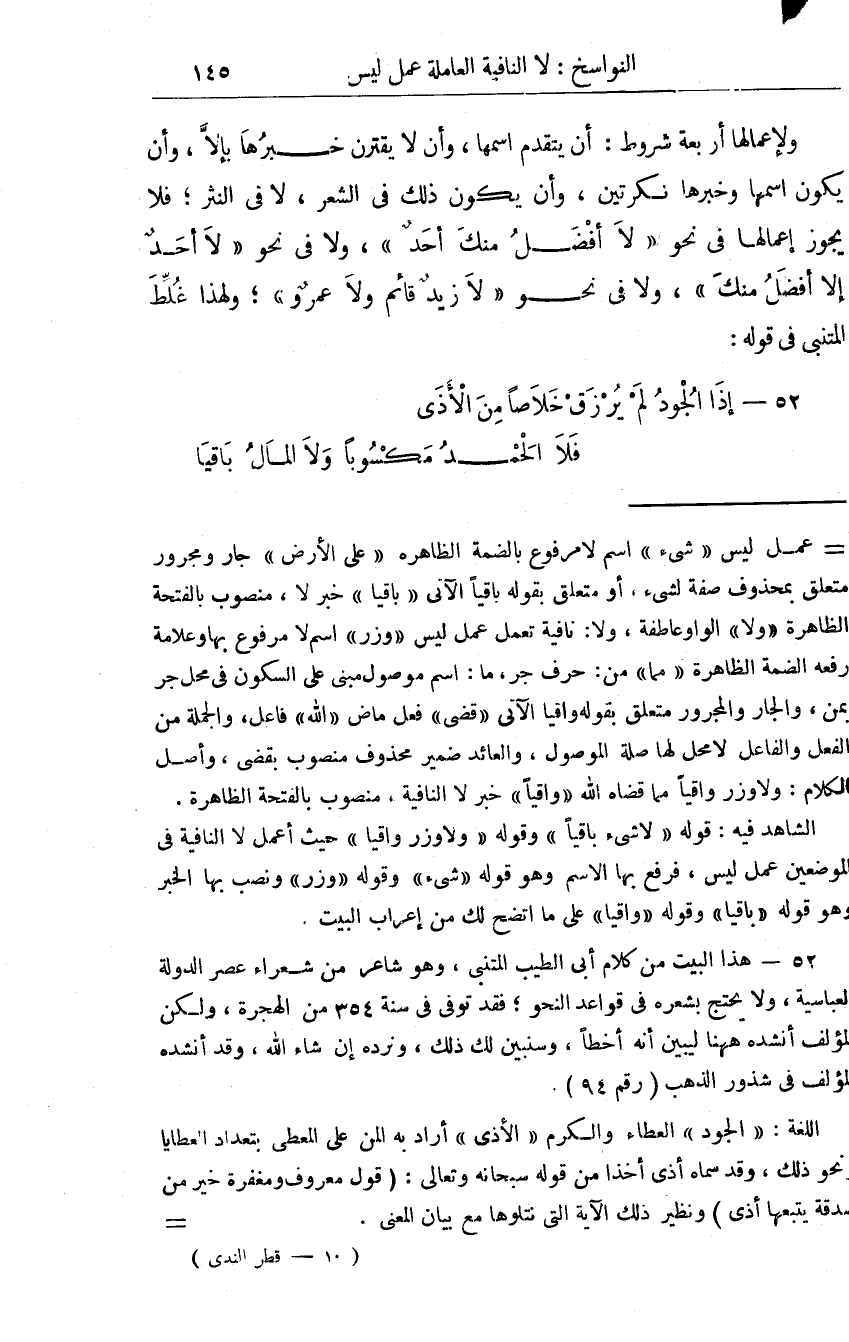 النواسخ : لا النافية العاملة عمل ليس ١٤٥
ولإعمالها أربعة شروط : أن يتقدم اسمها ، وأن لا يقترن خبرُهَا بإلاَّ ، وأن
يكون اسمها وخبرها نكرتين ، وأن يكون ذلك فى الشعر ، لا فى النثر ؛ فلا
يجوز إعمالها فى نحو « لاَ أفْضَلُ منكَ أحَدٌ » ، ولا فى نحو « لاَ أحَدٌ
إلا أفضَلُ منكَ » ، ولا فى نحو « لاَ زيدٌ قائم ولاَ عمرٌو » ؛ ولهذا غُلِّطَ
المتنبى فى قوله :
٥٢ — إذَا الُجْودُ لَمْ يُرْزَقْ خَلَاصاً مِنَ الْأَذَى
فَلَا الَحْمْدُ مَكْسُوباً وَلاَ المَالُ بَاقيَا
= عمل ليس « شىء » اسم لا مرفوع بالضمة الظاهره « على الأرض » جار ومجرور
متعلق بمحذوف صفة لشىء ، أو متعلق بقوله باقياً الآتى « باقيا » خبر لا ، منصوب بالفتحة
الظاهرة «ولا» الواو عاطفة ، ولا: نافية تعمل عمل ليس «وزر» اسم لا مرفوع بها وعلامة
رفعه الضمة الظاهرة « مما» من: حرف جر، ما: اسم موصول مبنى على السكون فى محل جر
بمن ، والجار والمجرور متعلق بقوله واقيا الآتى «قضى» فعل ماض «الله» فاعل، والجملة من
الفعل والفاعل لا محل لها صلة الموصول ، والعائد ضمير محذوف منصوب بقضى ، وأصل
الكلام : ولا وزر واقياً مما قضاه الله «واقياً» خبر لا النافية ، منصوب بالفتحة الظاهرة .
الشاهد فيه : قوله « لاشىء باقياً » وقوله « ولا وزر واقيا » حيث أعمل لا النافية فى
الموضعين عمل ليس ، فرفع بها الاسم وهو قوله «شىء» وقوله «وزر» ونصب بها الخبر
وهو قوله «باقيا» وقوله «واقيا» على ما اتضح لك من إعراب البيت .
٥٢ — هذا البيت من كلام أبى الطيب المتنبى ، وهو شاعر من شعراء عصر الدولة
لعباسية ، ولا يحتج بشعره فى قواعد النحو ؛ فقد توفى فى سنة ٣٥٤ من الهجرة ، ولكن
لمؤلف أنشده ههنا ليبين أنه أخطأ ، وسنبين لك ذلك ، ونرده إن شاء الله ، وقد أنشده
لمؤلف فى شذور الذهب ( رقم ٩٤ ) .
اللغة : « الجود » العطاء والكرم « الأذى » أراد به المن على المعطى بتعداد العطايا
ونحو ذلك ، وقد سماه أذى أخذا من قوله سبحانه وتعالى : ( قول معروف ومغفرة خير من
صدقة يتبعها أذى ) ونظير ذلك الآية التى نتلوها مع بيان المعنى . =
( ١٠ — قطر الندى )